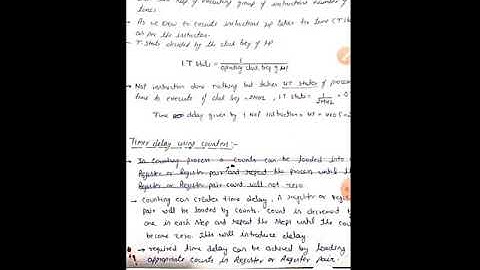 help of executing group of instructions number of
times.
→ As we know to execute instructions up takes the time (T Stat
as per the instruction.
→ T-State decided by the clock freq of MP
1.T State = 1 / operating clock freq of MP
→ Not instruction done nothing but takes 4T States of process
time to execute if clk freq = 2MHz, 1.T State = 1/2MHz = 0.
Time delay given by 1 Not instruction = 4T = 4×0.5 = 2
Timer delay using counters:-
→ In counting process a counts can be loaded into
Register or Register pair and repeat the process until the
Register or Register pair count will not zero.
→ counting can creates time delay. A register or Regis
pair will be loaded by counts. count is decremented b
one in each step and repeat the steps until the cou
become zero. This will introduce delay.
→ required time delay can be achieved by loading
appropriate counts in Register or Register pair.